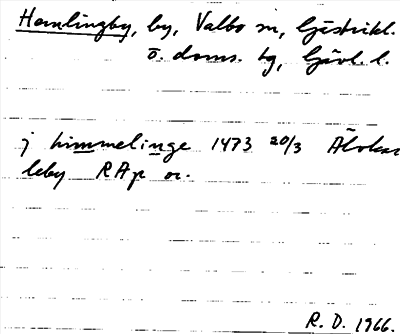 Hemlingby, by, Valbo sn, Gästrikl.
ö. doms. hg, Gävl. l.
j himmelinge 1473 20/3 Älvkar
leby RAp or.
R. D. 1966.